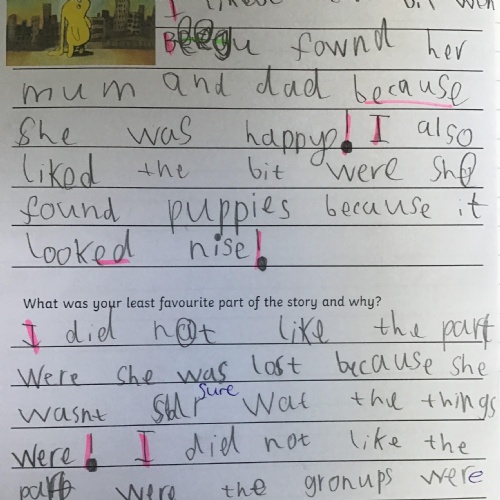 I liked the bit wen
Beegu fownd her
mum and dad because
She was happy! I also
liked the bit were she
found puppies because it
looked nise!
What was your least favourite part of the story and why?
I did not like the part
Were she was lost because she
wasnt sure wat the things
were! I did not like the
part were the gronups were